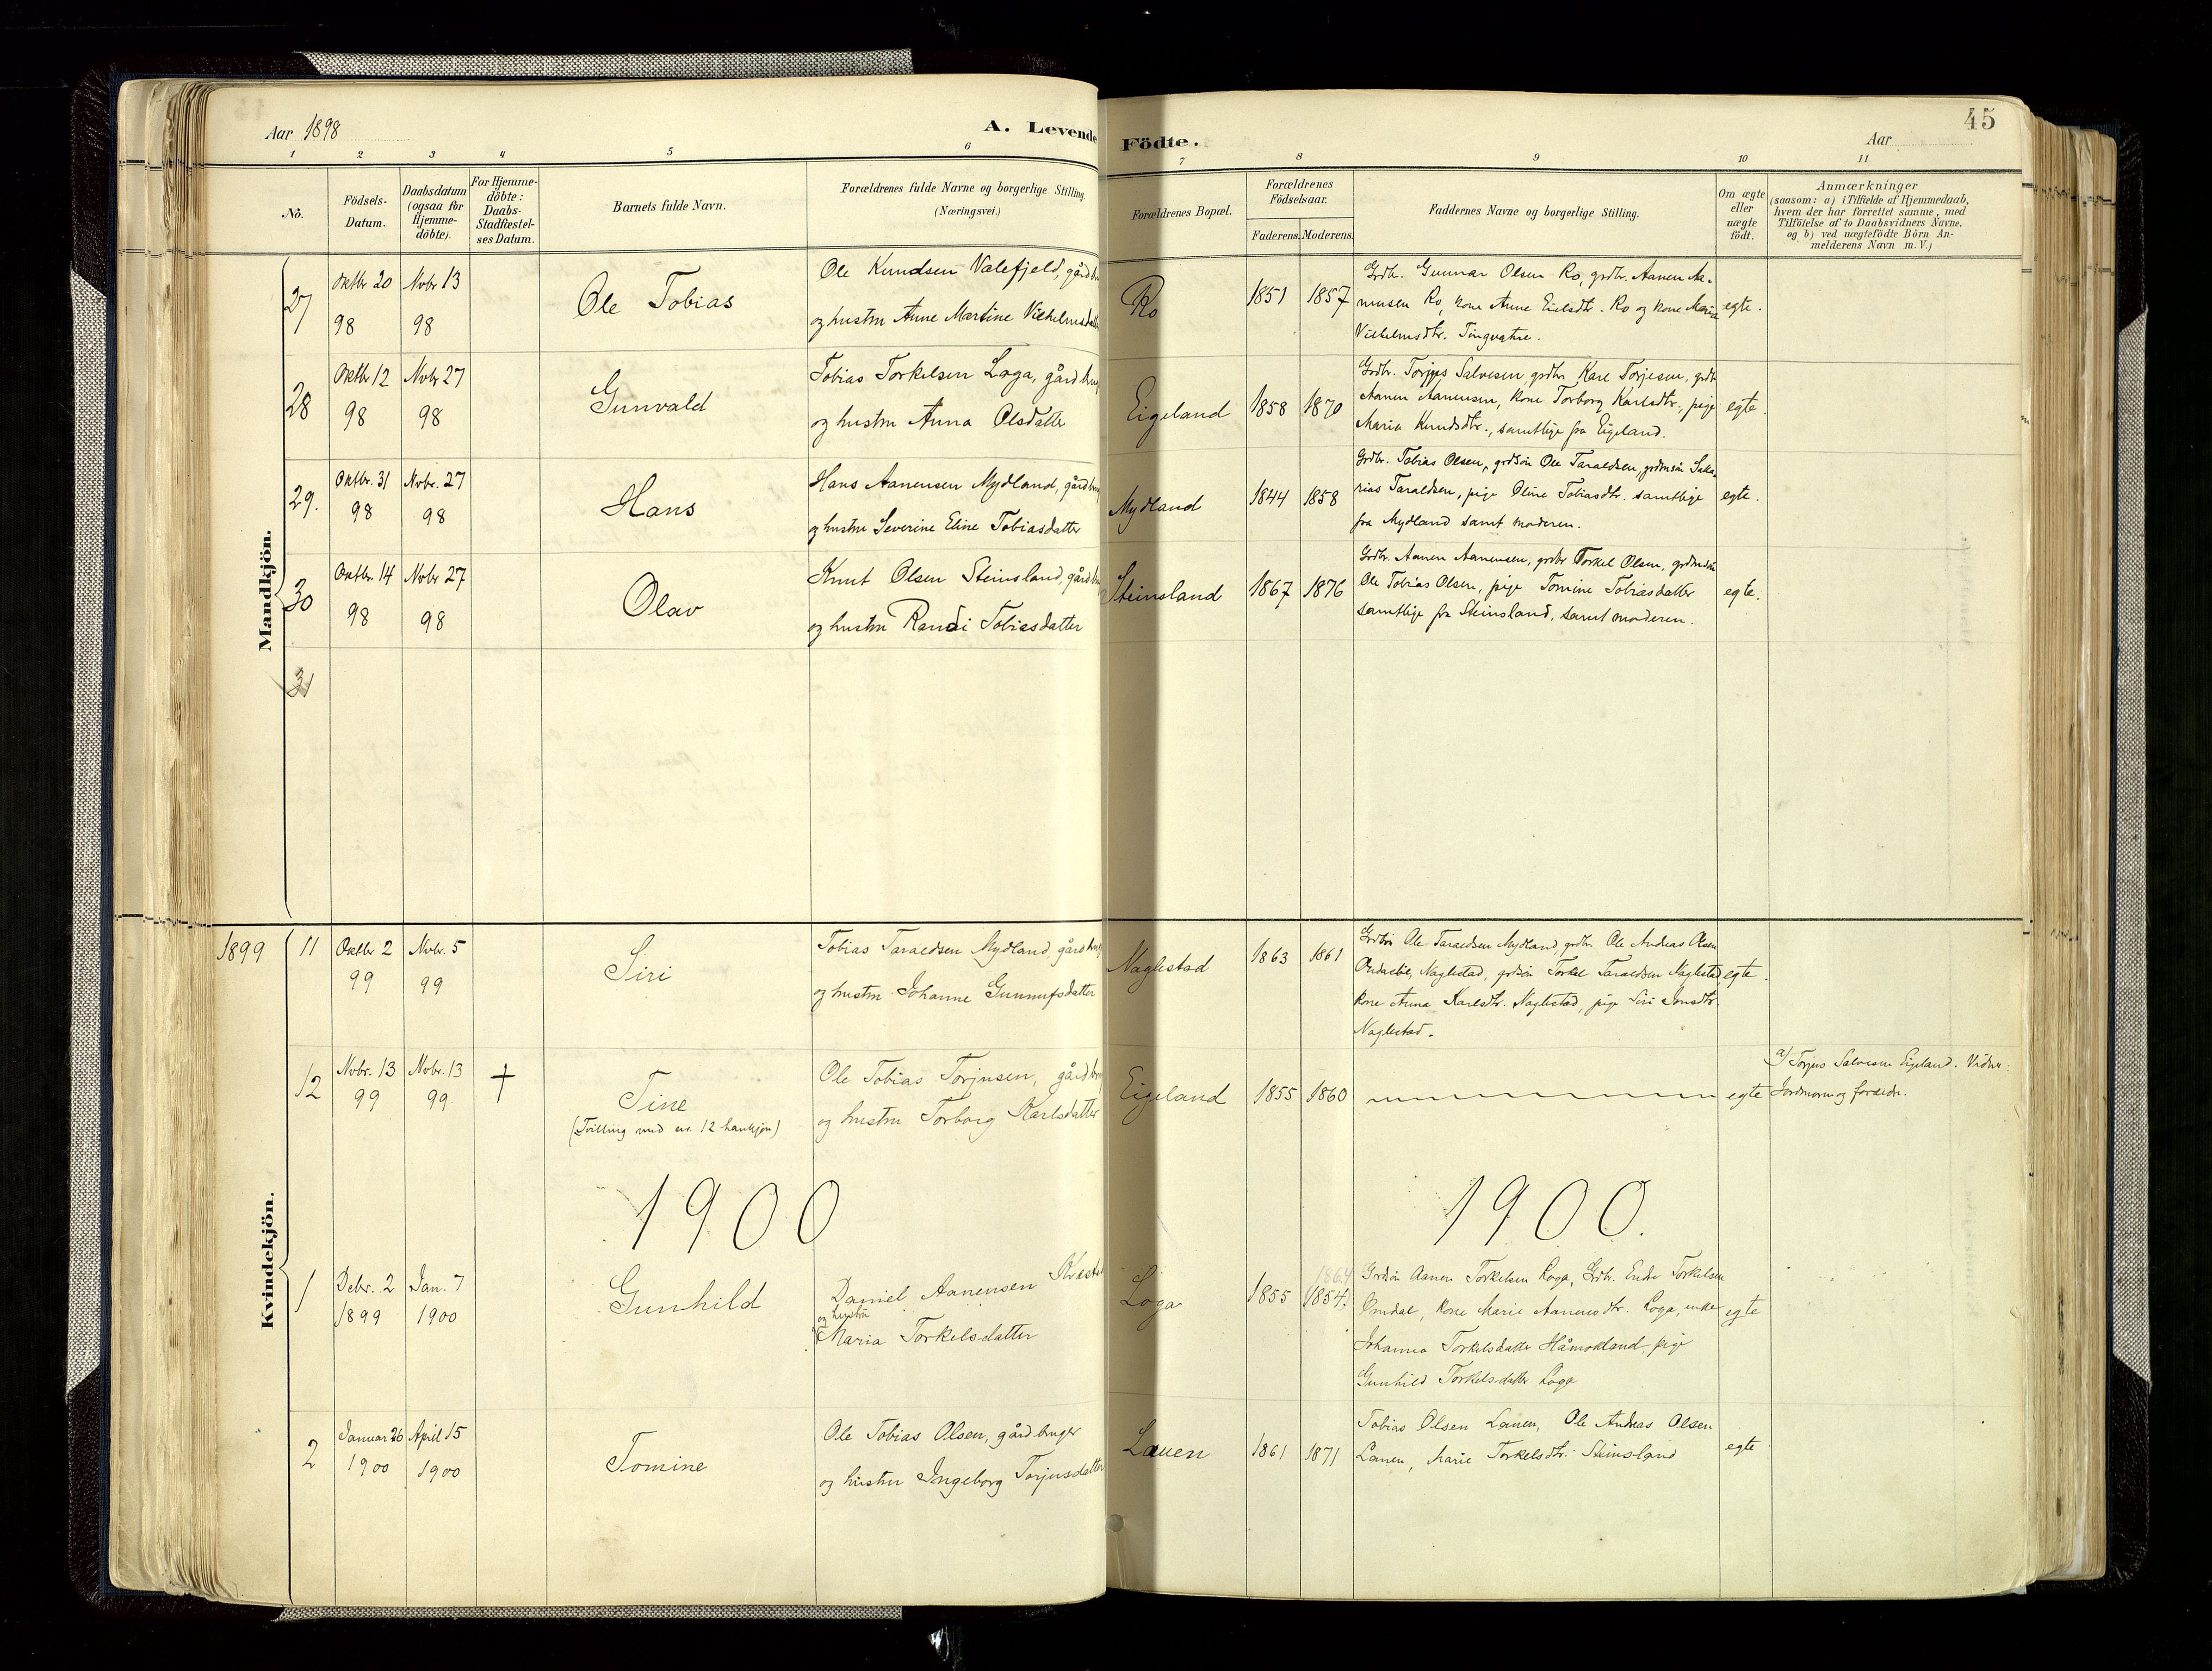 45
Aar 1898
A. Levende Födte.
Aar
1 2 3 4 5 6 7 8 9 10 11
No.
Födsels-Datum.
Daabsdatum (ogsaa for Hjemme-döbte).
For Hjemme-döbte: Daabs-Stadfæstel-ses Datum.
Barnets fulde Navn.
Forældrenes fulde Navne og borgerlige Stilling.
(Næringsvei.)
Forældrenes Bopæl.
Forældrenes Födselsaar.
Faderens. Moderens.
Faddernes Navne og borgerlige Stilling.
Om ægte eller uægte födt.
Anmærkninger
(saasom: a) i Tilfælde af Hjemmedaab, hvem der har forrettet samme, med Tilföielse af to Daabsvidners Navne, og b) ved uægtefödte Börn Anmelderens Navn m. V.)
Mandkjön.
27 Oktbr 20 98 Novbr 13 98 Ole Tobias
Ole Knudsen Valefjeld, gårdbr
og hustru Anne Martine Vilhelmsdatt
Ro 1851 1857
Grdbr. Gunnar Olsen Ro, grdbr. Aanen Aa-
nensen Ro, kone Anne Eielsdtr. Ro og kone Maria
Vilhelmsdtr. Tingvatne.
egte.
28 Oktbr 12 98 Novbr 27 98 Gunvald
Tobias Torkelsen Loga, gårdbrug
og hustru Anna Olsdatter
Eigeland 1858 1870
Grdbr. Torjus Salvesen, grdbr. Karl Torjesen, grdb
Aanen Aanensen, kone Torborg Karlsdtr., pige
Maria Knudsdtr., samtlige fra Eigeland.
egte.
29. Oktbr. 31 98 Novbr. 27 98 Hans
Hans Aanensen Mydland, gårdbrug
og hustru Severine Eline Tobiasdatter
Mydland 1844 1858
Grdbr. Tobias Olsen, grdsøn Ole Taraldsen, grdmsøn Saka-
rias Taraldsen, pige Oline Tobiasdtr. samtlige
fra Mydland samt moderen.
egte.
30 Oktbr. 14 98 Novbr 27 98 Olav
Knut Olsen Steinsland, gårdbr
og hustru Randi Tobiasdatter
Steinsland 1867 1876
Grdbr. Aanen Aanensen, grdbr Torkel Olsen, grdmdsøn
Ole Tobias Olsen, pige Tomine Tobiasdatter
samtlige fra Steinsland, samt moderen.
egte.
31
Kvindekjön.
1899
11 Oktbr 2 99 Novbr. 5 99 Siri
Tobias Taraldsen Mydland, gårdbrug
og hustru Johanne Gunnufsdatter
Naglestad 1863 1861
Grdbr Ole Taraldsen Mydland, grdbr. Ole Andreas Olsen
Naglestad, grdsøn Torkel Taraldsen Naglestad,
kone Anna Karlsdtr. Naglestad, pige Siri Jonsdtr.
Naglestad.
egte.
12 Novbr. 13 99 Novbr. 13 99 † Tine
(Tvilling med nr. 12 hankjøn)
Ole Tobias Torjusen, gårdbr
og hustru Torborg Karlsdatter
Eigeland 1855 1860
egte
a/ Torjus Salvesen Eigeland. Vidner:
Jordmor og forældr.
1900 1900.
1 Debr. 2 1899 Jan. 7 1900 Gunhild
Daniel Aanensen
og hustru
Maria Torkelsdatter
Loga 1855 1864 1854.
Grdsøn Aanen Torkelsen Loga, Grdbr. Endre Torkelsen
Omdal, Kone Marie Aanensdtr. Loga, enke
Johanna Torkelsdatter Håmokland, pige
Gunhild Torkelsdatter Loga
egte
2 Januar 26 1900 April 15 1900 Tomine
Ole Tobias Olsen, gårdbruger
og hustru Ingeborg Torjusdatter
Lauen 1861 1871
Tobias Olsen Lauen, Ole Andreas Olsen
Lauen, Marie Torkelsdtr. Steinsland
egte